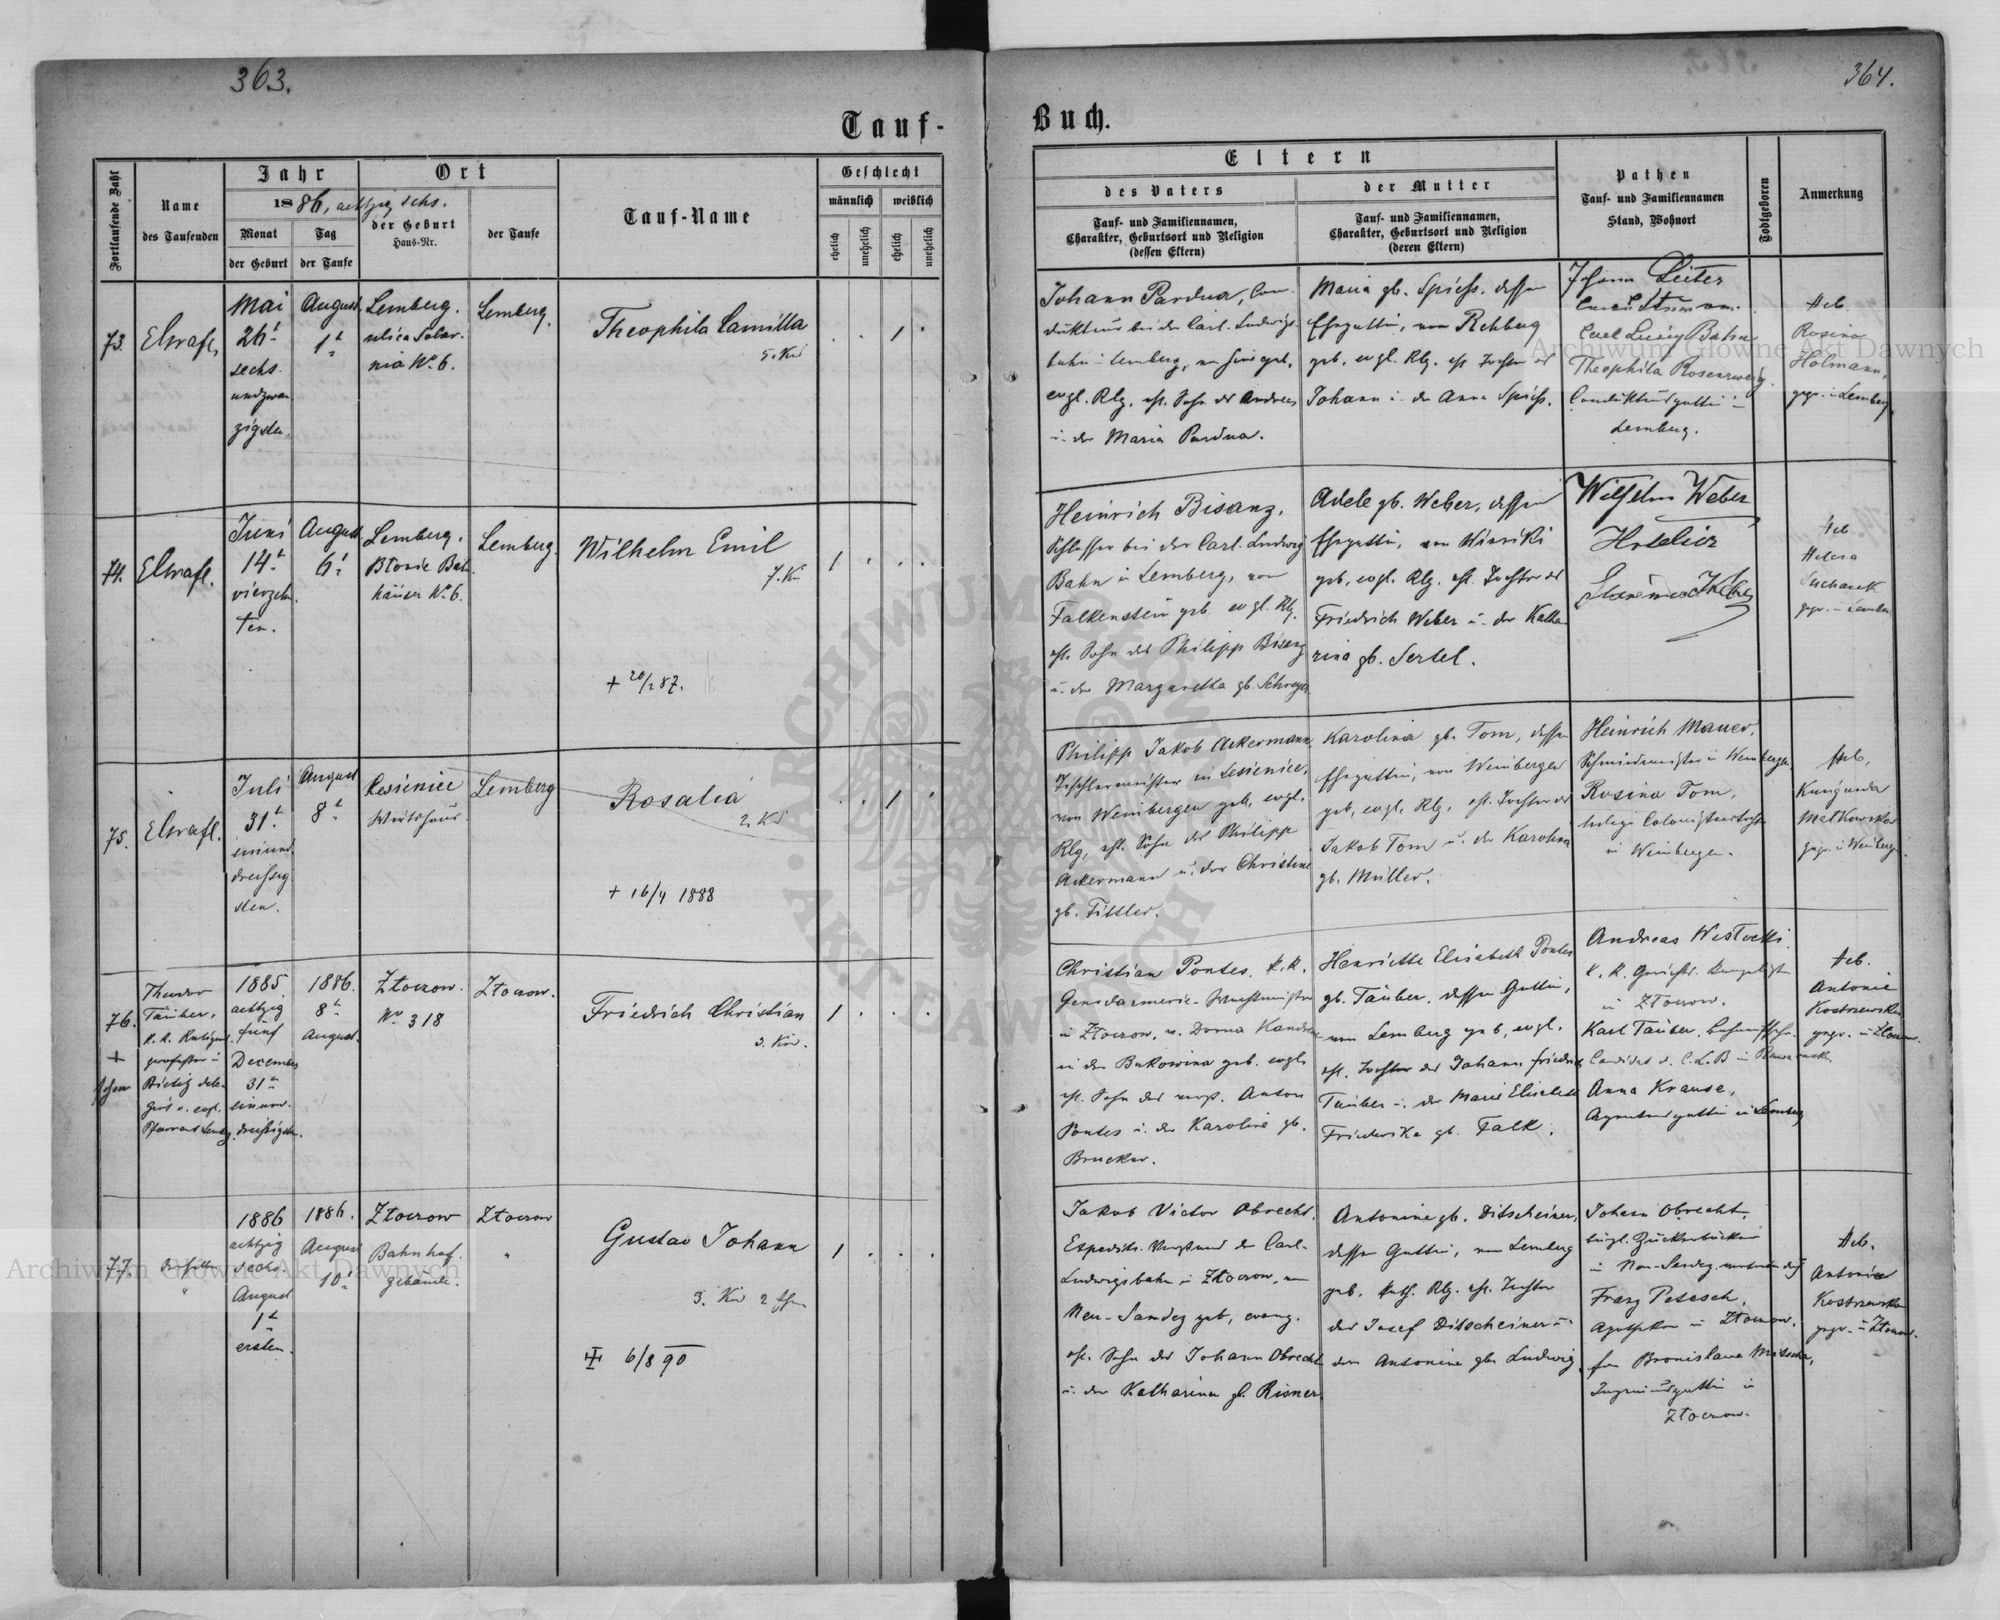 363.
364.
Tauf-
Buch.
Fortlaufende Zahl
Name
des Taufenden
Jahr
1886, achtzig sechs.
Monat
der Geburt
Tag
der Taufe
Ort
der Geburt
Haus-Nr.
der Taufe
Tauf-Name
Geschlecht
männlich
weiblich
ehelich
unehelich
ehelich
unehelich
Eltern
des Vaters
Tauf- und Familiennamen,
Charakter, Geburtsort und Religion
(dessen Eltern)
der Mutter
Tauf- und Familiennamen,
Charakter, Geburtsort und Religion
(deren Eltern)
Pathen
Tauf- und Familiennamen
Stand, Wohnort
Todtgeboren
Anmerkung
73.
Mai
26t
sechs
undzwan
zigsten
August
1t
Lemberg.
ulica Solar-
nia No 6.
Lemberg.
Theophila Camilla
5. Kd
Johann Pardua, Con-
dukteur bei der Carl-Ludwigs-
bahn in Lemberg,
evgl. Rlg. ehl. Sohn des Andreas
u. der Maria Pardua.
Maria gb. Spiess. dessen
Ehegattin, von Rehberg
geb. evgl. Rlg. ehl. Tochter des
Johann u. der Anna Spiess.
Johann Leiter
Carl Ludwig Bahn
Theophila Rosenzweig
Condukteursgattin in
Lemberg.
Heb.
Rosina
Holmann,
gepr. in Lemberg
74.
Juni
14t
vierzehn
ten.
August
6t
Lemberg.
Błonie Bah
häuser No 6.
Lemberg.
Wilhelm Emil
7. Kd
+ 20/2 87.
Heinrich Bisanz,
Schlosser bei der Carl Ludwig
Bahn in Lemberg, von
Falkenstein geb. evgl. Rlg.
ehl. Sohn des Philipp Bisanz
u. der Margaretha gb. Schreyer
Adele gb. Weber, dessen
Ehegattin, von Winniki
geb. evgl. Rlg. ehl. Tochter des
Friedrich Weber u. der Katha
rina gb. Sertel.
Wilhelm Weber
Hotelier
Heb.
Helena
Sucharek
gepr. in Lember
75.
Juli
31t
einund
dreissig
sten.
August
8t
Lesienice
Wirtshaus
Lemberg
Rosalia
2. Kd
+ 16/4 1888
Philipp Jakob Ackermann,
Tischlermeister in Lesienice,
von Weinbergen geb. evgl.
Rlg. ehl. Sohn des Philipp
Ackermann u. der Christine
gb. Tittler.
Karolina gb. Tom, dessen
Ehegattin, von Weinbergen
geb. evgl. Rlg. ehl. Tochter des
Jakob Tom u. der Karolina
gb. Müller.
Heinrich Mauer,
Schmiedemeister in Weinbergen
Rosina Tom,
ledige Colonistentochter
in Weinbergen.
Heb.
Kunigunda
Małkowska
gepr. in Weinbergen.
76.
+
Theodor
Täuber,
k. k. Religions
professor in
Bielitz
Pfarramt Lembg.
1885
achtzig
fünf
December
31t
einund
dreißigsten.
1886.
8t
August.
Złoczow.
No 318
Złoczow.
Friedrich Christian
3. Kd.
Christian Pontes, k. k.
Gensdarmerie-Wachtmeister
in Złoczow, v. Dorna Kandreni
in der Bukowina geb. evgl.
ehl. Sohn des Anton
Pontes u. der Karoline gb.
Brucker.
Henriette Elisabeth Pontes
gb. Täuber, dessen Gattin,
von Lemberg geb. evgl.
ehl. Tochter des Johann Friedrich
Täuber u. der Marie Elisabeth
Friederika gb. Falk.
Andreas Wisłocki
in Złoczow.
Karl Täuber,
Candidat
Anna Krause,
Agentensgattin in Lemberg
Heb.
Antonie
Kostrzewska
gepr. in Złoczow.
77.
derselbe
"
1886
achtzig
sechs
August
1t
ersten.
1886.
August
10t
Złoczow
Bahnhof
gebäude.
Złoczow
"
Gustav Johann
3. Kd 2 Ehe
6/8 90
Jakob Victor Obrecht,
Expedits-Vorstand der Carl-
Ludwigsbahn in Złoczow, von
Neu-Sandez geb. evang.
ehl. Sohn des Johann Obrecht
u. der Katharina gb. Risner.
Antonine gb. Ditscheiner,
dessen Gattin, von Lemberg
geb. kath. Rlg. ehl. Tochter
des Josef Ditscheiner u.
der Antonine gb. Ludwig.
Johann Obrecht,
bürgl. Zuckerbäcker
in Neu-Sandez
Franz Petesch,
Apotheker in Złoczow.
Fr. Bronislawa Matscha,
Ingenieursgattin in
Złoczow.
Heb.
Antonie
Kostrzewska
gepr. in Złoczow.
Archiwum Główne Akt Dawnych
Archiwum Główne Akt Dawnych
ARCHIWUM GŁÓWNE AKT DAWNYCH